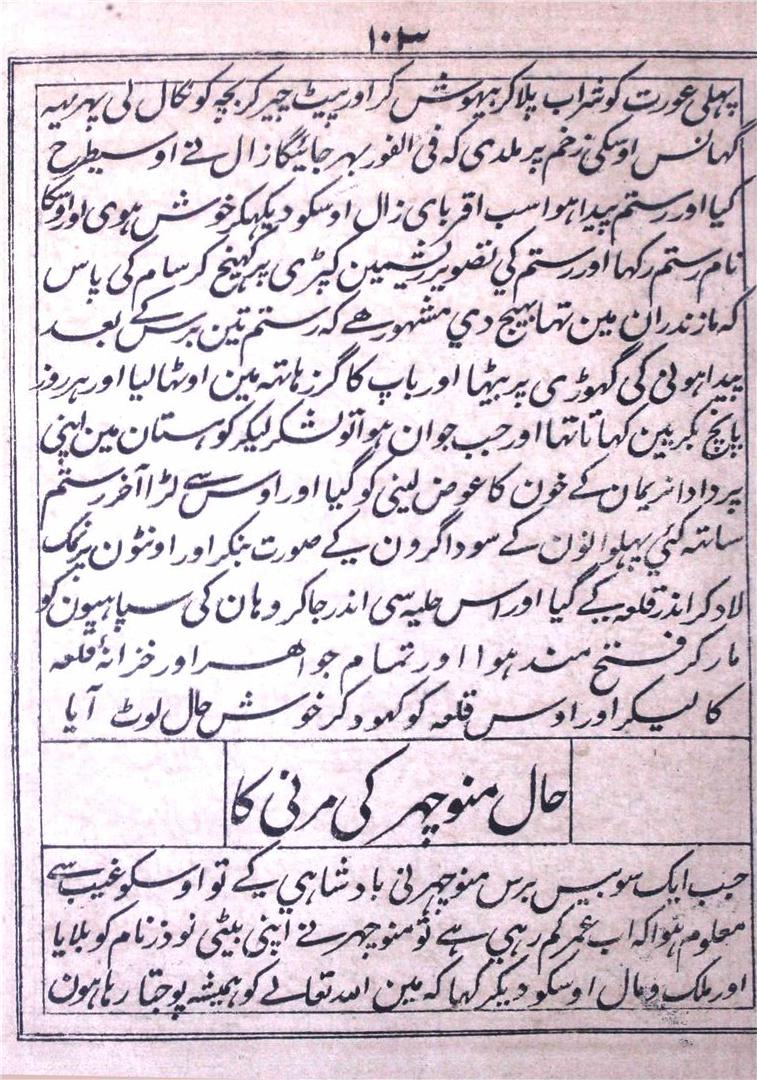 ۱۰۳
پہلی عورت کو شراب پلا کر بیہوش کر اور پیٹ چیر کر بچہ کو نکال لی پہر یہہ
گہانس اوسکی زخم پر ملدی کہ فی الفور بہر جائیگا زال نے اوسیطرح
کیا اور رستم پیدا ہوا سب اقربای زال اوسکو دیکہکر خوش ہوی اور اوسکا
نام رستم رکہا اور رستم کي تصویر ریشمین کپڑی پر کہینچ کر سام کی پاس
کہ مازندران مین تہا بہیج دي مشہور ھے کہ رستم تین برس کے بعد
پیدا ہونی کی گہوڑی پر بیٹہا اور باپ کا گرز ہاتہ مین اوٹہا لیا اور ہر روز
پانچ بکریین کہاتا تہا اور جب جوان ہوا تو لشکر لیکر کوہستان مین اپنی
پردادا نریمان کے خون کا عوض لینی کو گیا اور اوس سے لڑا آخر رستم
ساتہ کئي پہلوانون کے سوداگرون کے صورت بنکر اور اونٹون پر نمک
لاد کر اندر قلعہ کے گیا اور اس حلیہ سی اندر جا کر وہان کی سپاہیون کو
مار کر فتح مند ہوا اور تمام جواھر اور خزانۂ قلعہ
کا لیکر اور اوس قلعہ کو کہود کر خوش حال لوٹ آیا
حال منوچہر کی مرنی کا
جب ایک سو بیس برس منوچہر نی بادشاہي کے تو اوسکو غیب سے
معلوم ہوا کہ اب عمر کم رہي ہے تو منوچہر نے اپنی بیٹی نوذر نام کو بلایا
اور ملک و مال اوسکو دیکر کہا کہ مین اللہ تعالے کو ہمیشہ پوجتا رہا ہون